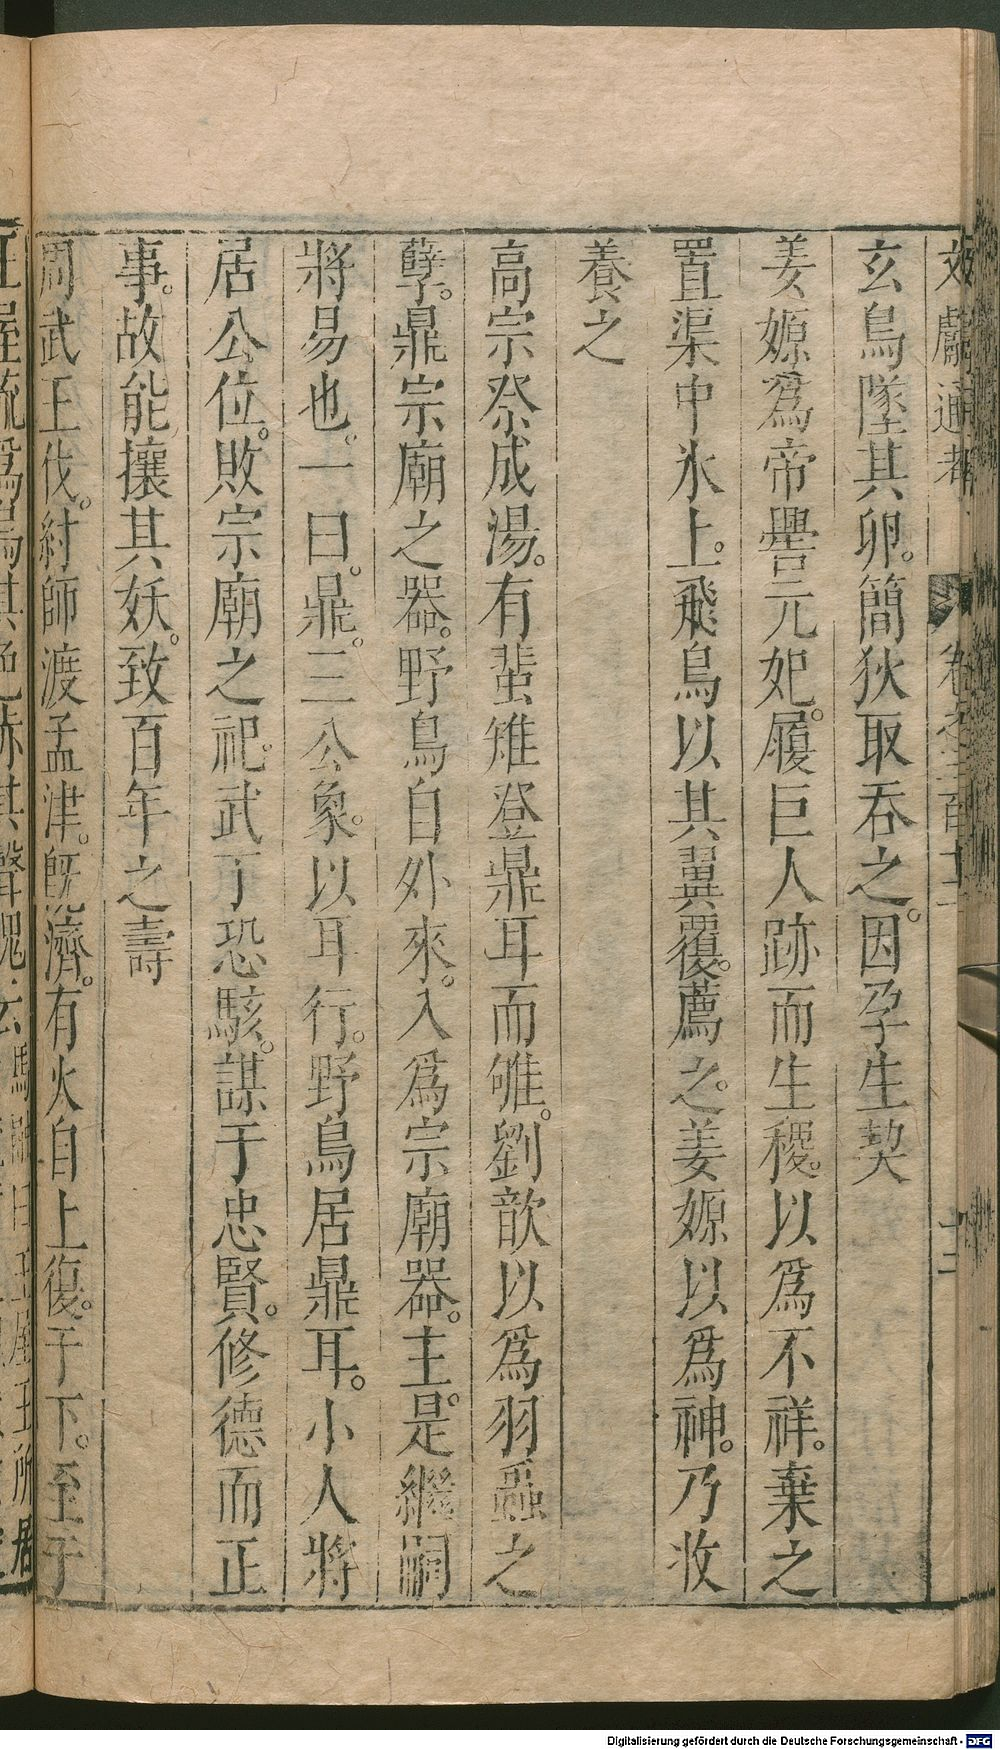 文獻通考 卷之三百十二 十二
玄鳥墜其卵。簡狄取吞之。因孕生契
姜嫄爲帝嚳元妃。履巨人跡而生稷。以爲不祥。棄之
置渠中氷上。飛鳥以其翼覆。薦之。姜嫄以爲神。乃收
養之
高宗祭成湯。有蜚雉登鼎耳而雊。劉歆以爲羽蟲之
孽。鼎宗廟之器。野鳥自外來。入爲宗廟器。主。是繼嗣
將易也。一曰。鼎。三公象。以耳行。野鳥居鼎耳。小人將
居公位。敗宗廟之祀。武丁恐駭。謀于忠賢。修德而正
事。故能攘其妖。致百年之壽
周武王伐。紂師渡孟津。旣濟。有火自上復。于下。至于
王屋流爲烏其色赤其聲魄云
馬融曰王屋王所居
Digitalisierung gefördert durch die Deutsche Forschungsgemeinschaft - DFG